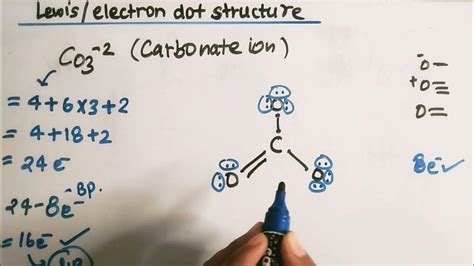 Lewis/electron dot structure
CO3⁻² (Carbonate ion)
= 4+6×3+2
= 4+18+2
= 24e⁻
24-8e⁻ BP.
=16e⁻ ✓
O
C
O O
⁻O—
⁺O≡
O=
8e⁻✓